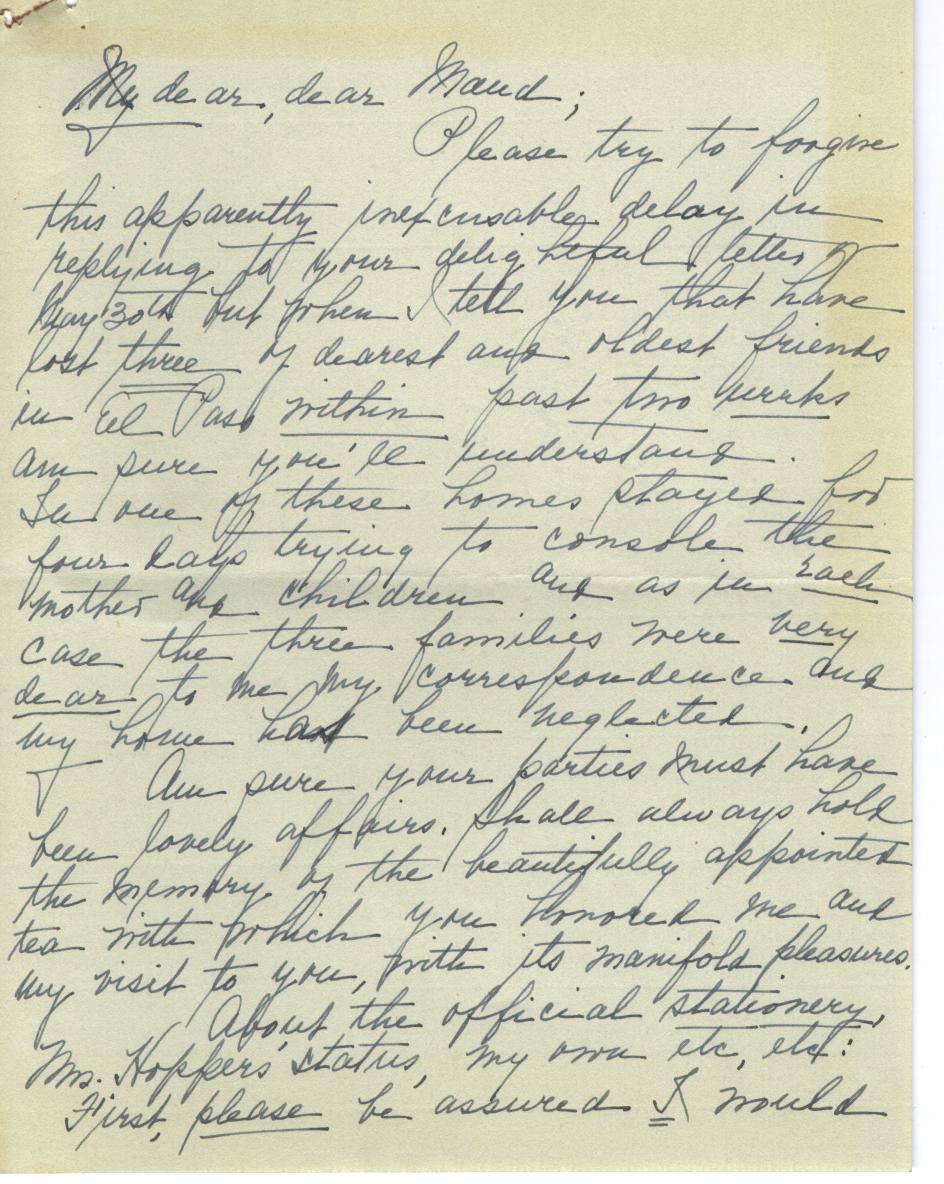 My dear, dear Maud;
Please try to forgive
this apparently inexcusable delay in
replying to your delightful letter of
May 30th but when I tell you that have
lost three of dearest and oldest friends
in El Paso within past two weeks
am sure you'll understand.
In one of these homes stayed for
four days trying to console the
mother and children and as in each
case the three families were very
dear to me my correspondence and
my home has been neglected.
Am sure your parties must have
been lovely affairs. Shall always hold
the memory of the beautifully appointed
tea with which you honored me and
my visit to you, with its manifold pleasures.
About the official stationery,
Mrs. Hoppers' status, my own etc, etc:
First, please be assured I would